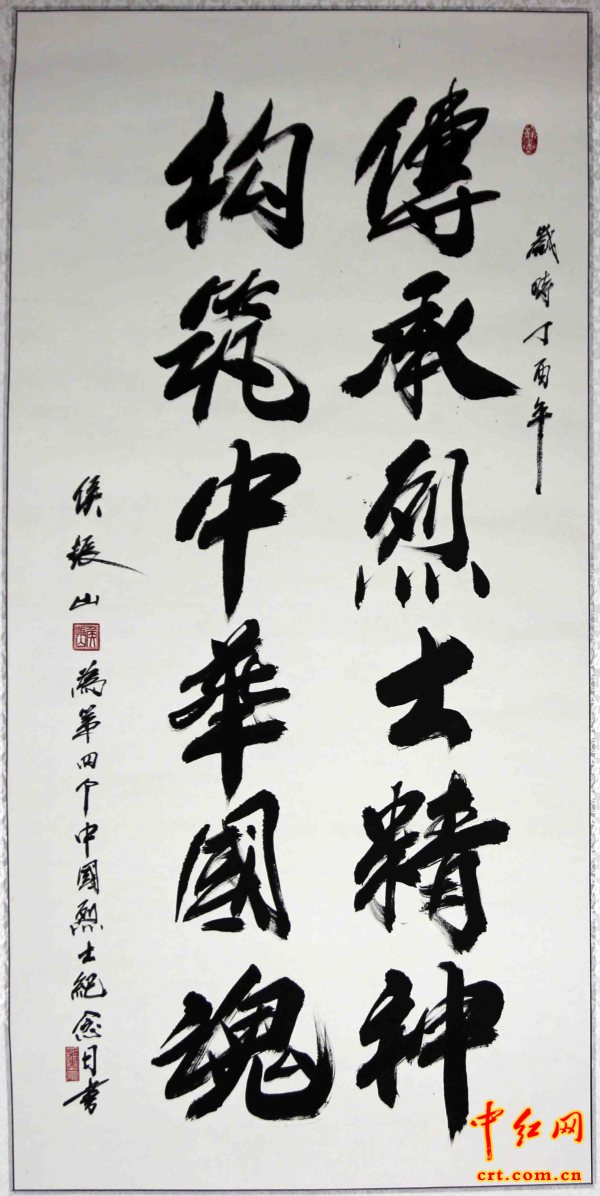 歲時丁酉年
傳承烈士精神
构筑中華國魂
侯振山
為第四个中國烈士紀念日書
中红网
crt.com.cn